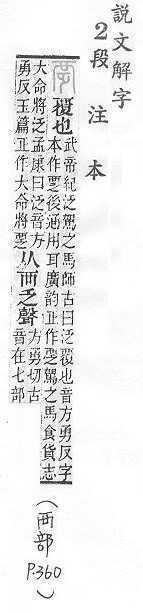 說文解字
2段注本
覆也
武帝紀泛駕之馬師古曰泛覆也音方勇反字
本作覂後通用耳廣韵𠀤作覂駕之馬食貨志
大命將泛孟康曰泛音方
勇反玉篇𠀤作大命將覂
从襾乏聲
方勇切古
音在七部
(西部
P.360)